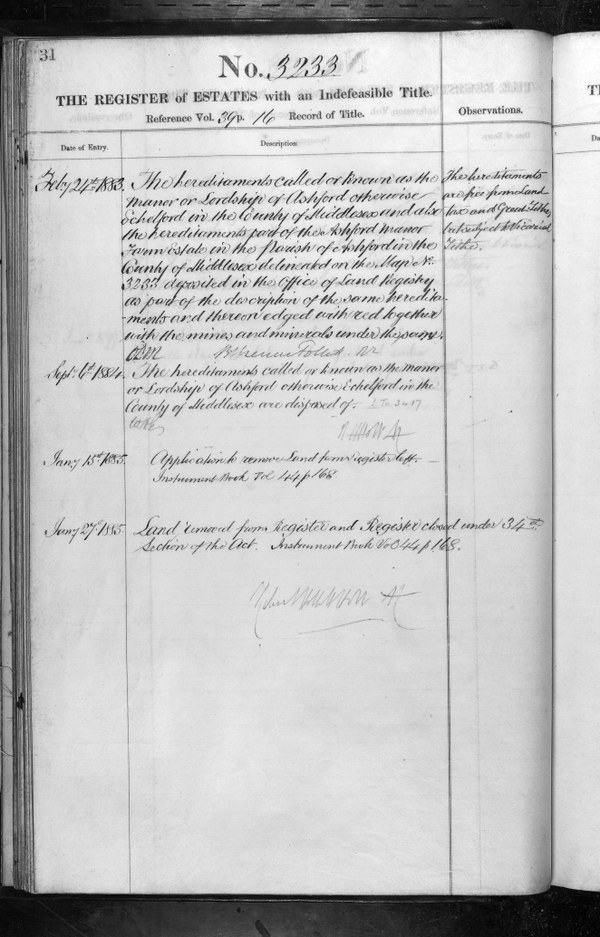 31
No. 3233
THE REGISTER of ESTATES with an Indefeasible Title.
Reference Vol. 39 p. 16 Record of Title.
Observations.
Date of Entry.
Description
Feby 24th 1883.
The hereditaments called or known as the
Manor or Lordship of Ashford otherwise
Echelford in the County of Middlesex and also
the hereditaments part of the Ashford Manor
Farm Estate in the Parish of Ashford in the
County of Middlesex delineated on the Map No.
3233 deposited in the Office of Land Registry
as part of the description of the same heredita-
-ments and thereon edged with red together
with the mines and minerals under the same.
The hereditaments
are free from Land
tax and Great Tithe
but subject to Vicarial
Tithe.
Septr. 6th 1884.
The hereditaments called or known as the Manor
or Lordship of Ashford otherwise Echelford in the
County of Middlesex are disposed of.
Jany 15th 1885.
Application to remove Land from Register left.
Instrument Book Vol 44 p 168
Jany 27th 1885.
Land removed from Register and Register closed under 34th
Section of the Act. Instrument Book Vol 44 p 168.